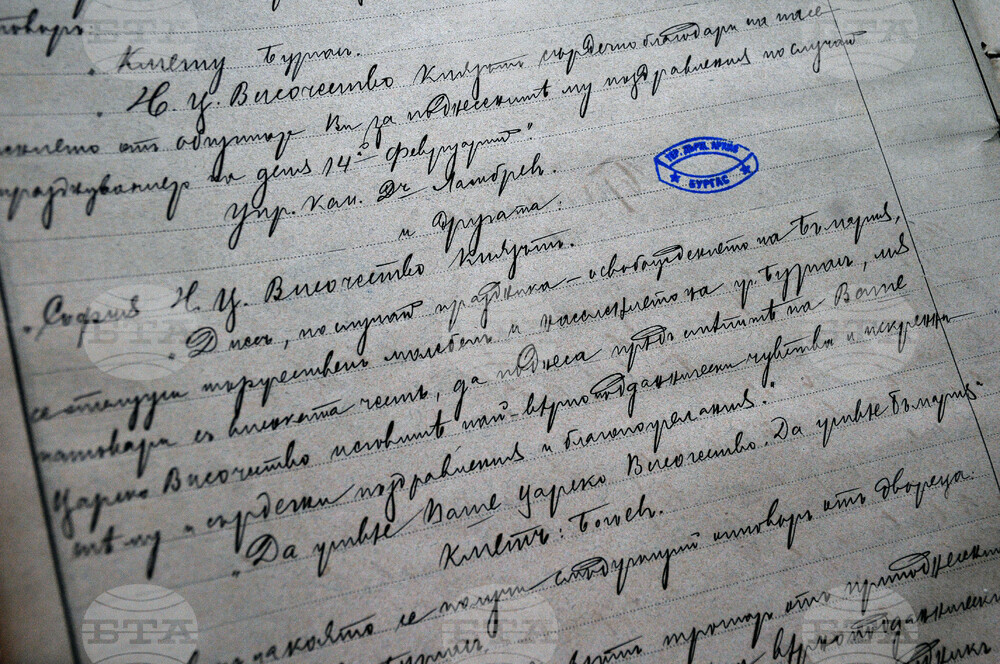 товоръ:
„Кмету Бургасъ.
„Н. Ц. Височество Князътъ сърдечно благодари на насе-
лението отъ общината Ви за поднесените му поздравления по случай
празднуванието на деня 14ий Февруарий“.
Упр. Кан. Дръ Стамбрев.
и другата:
„София Н. Ц. Височество Князътъ.
„Днесъ, по случай праздника – освобождението на България,
се отслужи тържественъ молебенъ и населението на гр. Бургасъ, ме
натовари съ високата честь, да поднеса предъ нозете на Ваше
Царско Височество неговите най-верноподаннически чувства и искренни-
те му и сърдечни поздравления и благопожелания.“
„Да живее Ваше Царско Височество. Да живее България“
Кметъ: Богоев.
на която се получи следующий отговоръ отъ двореца:
ТЕР. ДЪРЖ. АРХИВ
БУРГАС
БТА